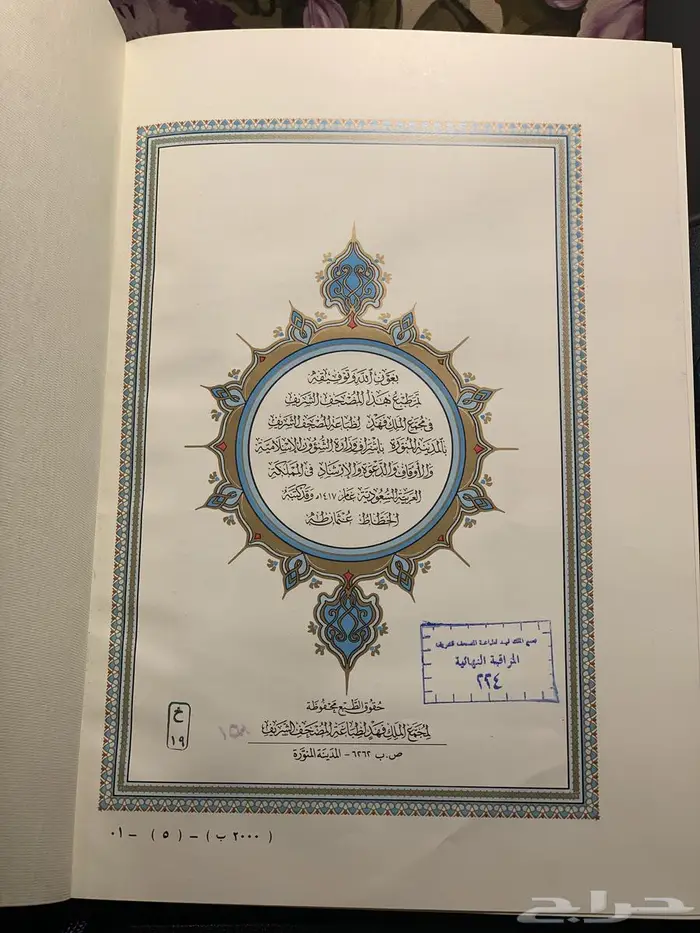 بعون الله وتوفيقه
تم طبع هذا المصحف الشريف
في مجمع الملك فهد لطباعة المصحف الشريف
بالمدينة المنورة بإشراف وزارة الشؤون الإسلامية
والأوقاف والدعوة والإرشاد في المملكة
العربية السعودية عام ١٤١٧هـ وقد كتبه
الخطاط عثمان طه
مجمع الملك فهد لطباعة المصحف الشريف
المراقبة النهائية
٢٢٤
حقوق الطبع محفوظة
لمجمع الملك فهد لطباعة المصحف الشريف
ص.ب ٦٢٦٢ - المدينة المنورة
خ
١٩
( ٢٠٠٠ ب ) - ( ٥ ) - ٠١
حراج